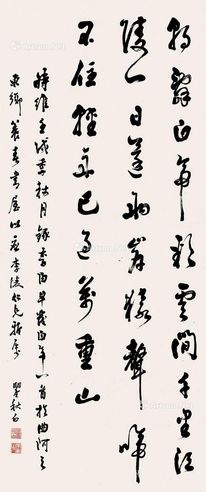 朝辭白帝彩雲間千里江
陵一日還兩岸猿聲啼
不住輕舟已過萬重山
時維壬戌季秋月錄李白早發白帝一首於曲阿之
東鄉書屋以應李陵仁兄雅屬 瞿秋白